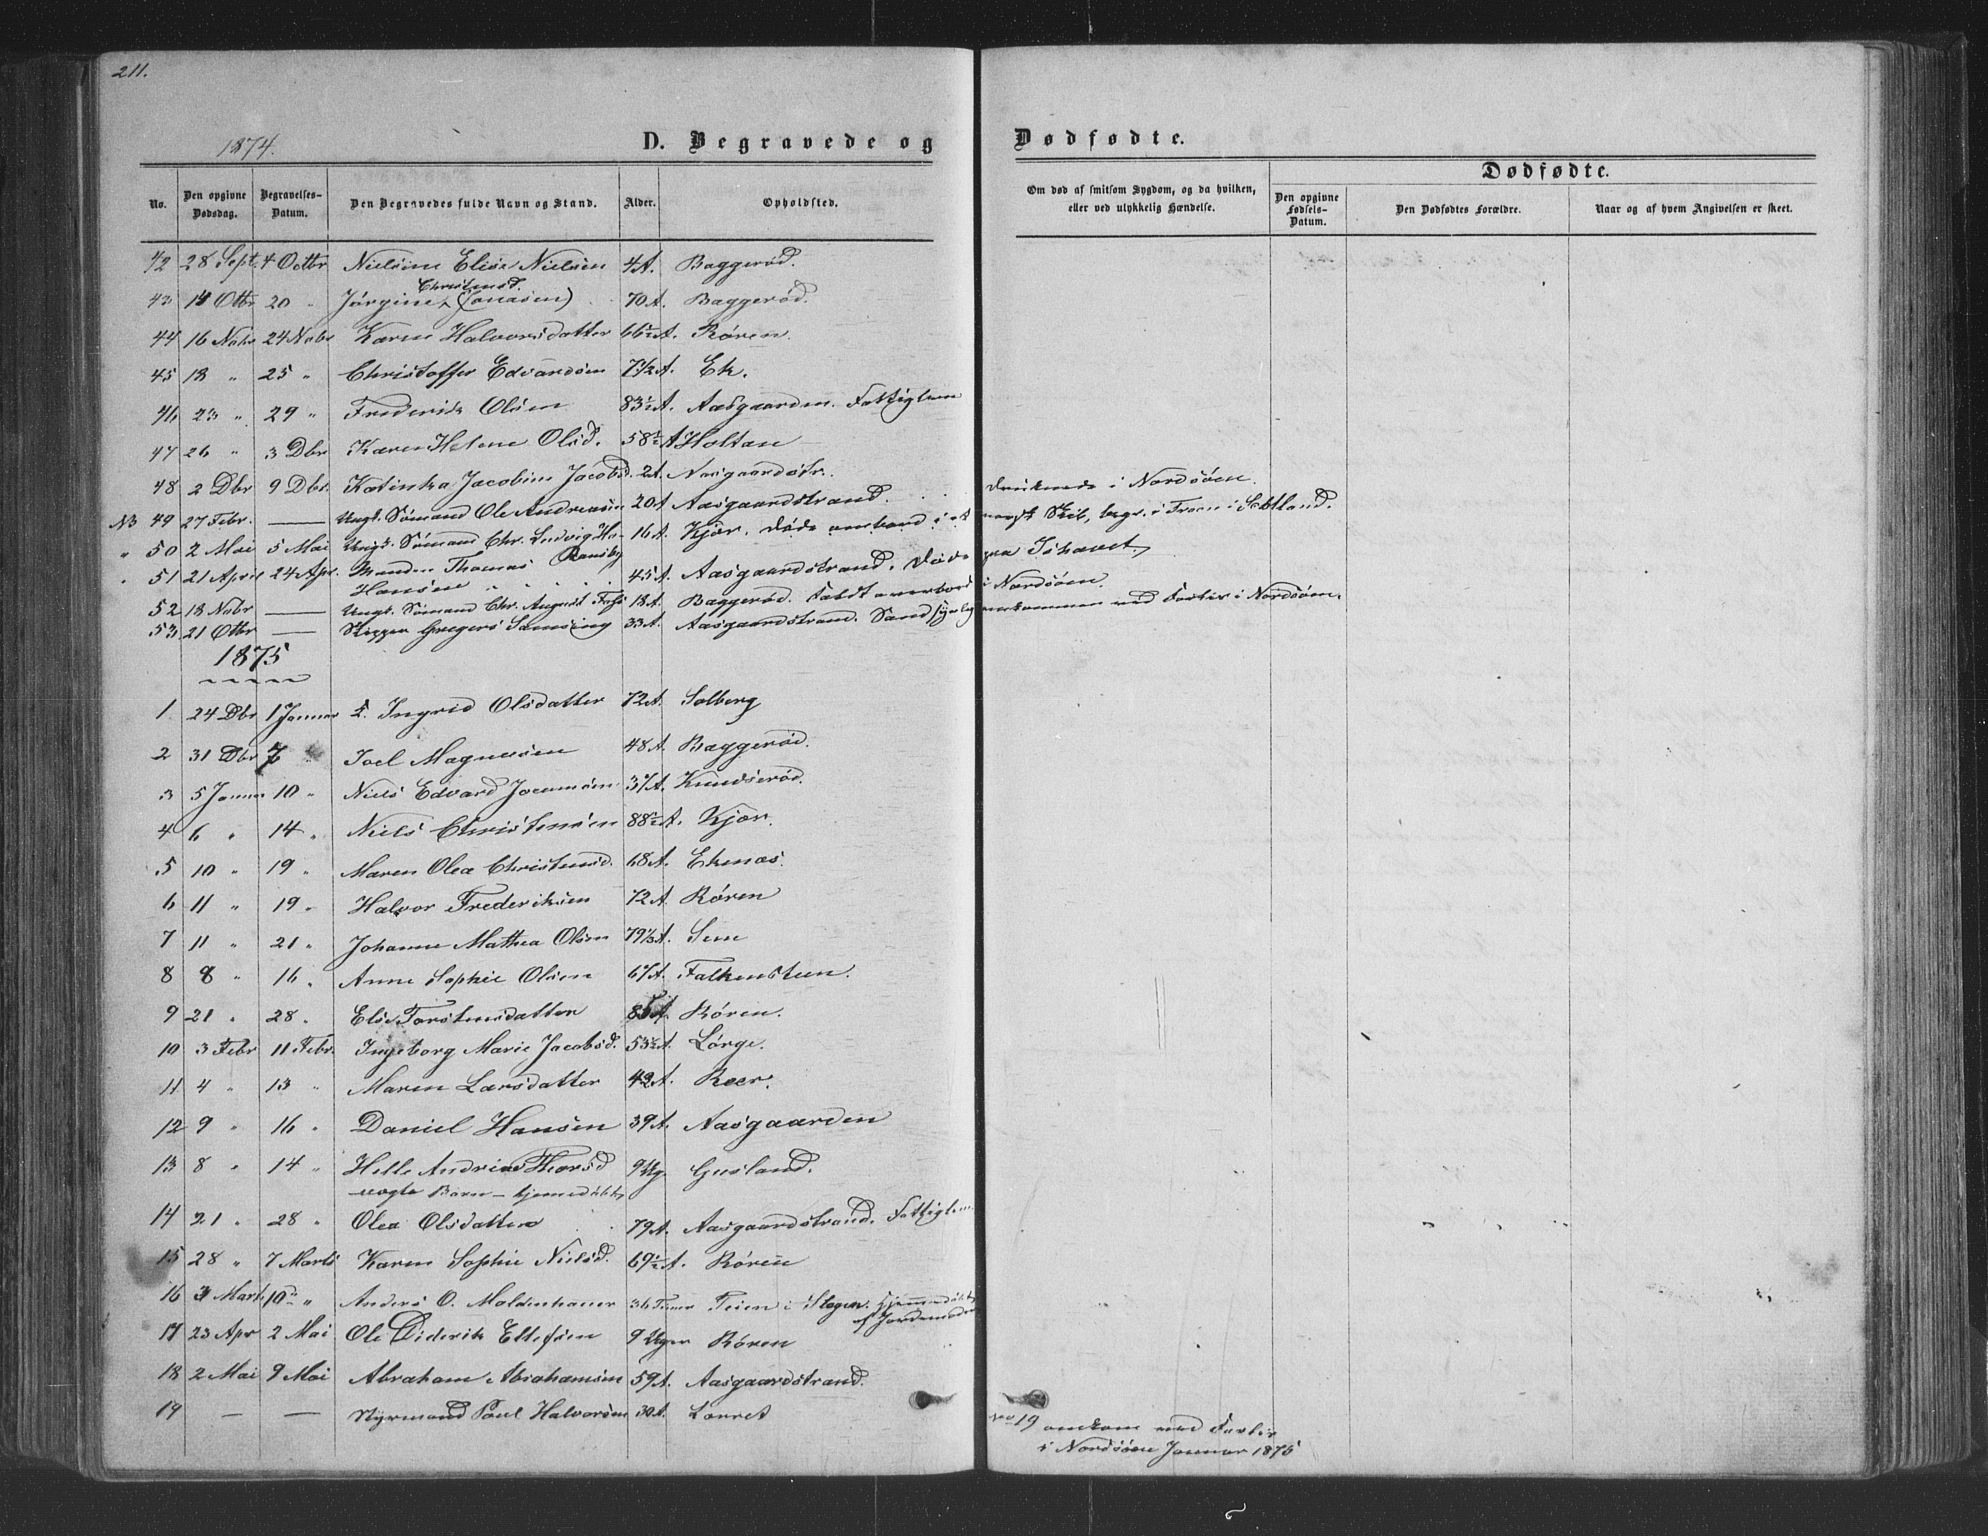 211.
1874.
D. Begravede og Dødfødte.
No.
Den opgivne Dødsdag.
Begravelses-Datum.
Den Begravedes fulde Navn og Stand.
Alder.
Opholdsted.
Om død af smitsom Sygdom, og da hvilken, eller ved ulykkelig Hændelse.
Dødfødte.
Den opgivne Fødsels-Datum.
Den Dødfødtes Forældre.
Naar og af hvem Angivelsen er skeet.
42 28 Sept. 4 Octbr Nielsine Elise Nielsen 4 A. Baggerød.
Christensd.
43 14 Otbr 20 " Jørgine (Jonasen) 70 A. Baggerød.
44 16 Nobr 24 Nobr Karen Halvorsdatter 66½ A. Røren.
45 18 " 25 " Christoffer Edvardsen 7½ A. Ek.
46 23 " 29 " Frederik Olsen 83½ A. Aasgaarden. Fattiglem
47 26 " 3 Dbr Karen Helene Olsd. 58½ A Holtan
48 2 Dbr 9 Dbr. Katinka Jacobine Jacobsd. 2 A. Aasgaardstr.
NB 49 27 Febr. — Ungk. Sømand Ole Andreasen 20 A. Aasgaardstrand. druknede i Nordsøen.
" 50 2 Mai 5 Mai Ungk. Sømand Chr. Ludvig 16 A. Kjær. Døde ombord i et norsk Skib, begr. i Troon i Skotland.
" 51 21 April 24 Apr. Manden Thomas Ransby
Hansen 45 A. Aasgaardstrand. Døde paa Ishavet.
52 18 Nobr — Ungk. Sømand Chr. August 18 A. Baggerød. Faldt overbord i Nordsøen.
53 21 Otbr — Skipper Gregers Samsing 33 A. Aasgaardstrand. Sandsynlig omkommen ved Forlis i Nordsøen.
1875
1 24 Dbr 1 Januar L. Ingrid Olsdatter 72 A. Solberg
2 31 Dbr 7 " Joel Magnussen 48 A. Baggerød.
3 5 Januar 10 " Niels Edvard 3 A. Knudserød.
4 6 " 14 " Niels Christensen 88½ A. Kjær.
5 10 " 19 " Maren Olea Christensd. 68 A. Eknæs.
6 11 " 19 " Halvor Frederiksen 72 A. Røren
7 11 " 21 " Johanne Mathea Olsen 79½ A. Sem
8 8 " 16 " Anne Sophie Olsen 6 A. Falkensteen.
9 21 " 28 " Else Torstensdatter 85 A. Røren.
10 3 Febr 11 Febr. Ingeborg Marie Jacobsd. 53½ A. Lørge.
11 4 " 13 " Maren Larsdatter 42 A. Roer.
12 9 " 16 " Daniel Hansen 39 A. Aasgaarden
13 8 " 14 " Helle Andrine Thorsd 9 Ug Gusland.
uægte Barn – hjemmedøbt
14 21 " 28 " Olea Olsdatter 79 A. Aasgaardstrand. Fattiglem
15 28 " 7 Marts Karen Sophie Nielsd. 69½ A. Røren
16 3 Mart. 10de " Anders O. Moldenhauer 36 Timer Teien i Slagen. hjemmedøbt
af Jordemoder
17 23 Apr 2 Mai Ole Diderik Ellefsen 9 Uger Røren
18 2 Mai 9 Mai Abraham Abrahamsen 59 A. Aasgaardstrand.
19 — — Styrmand Poul Halvorsen 30 A.
No 19 omkom ved Forlis
i Nordsøen Januar 1875